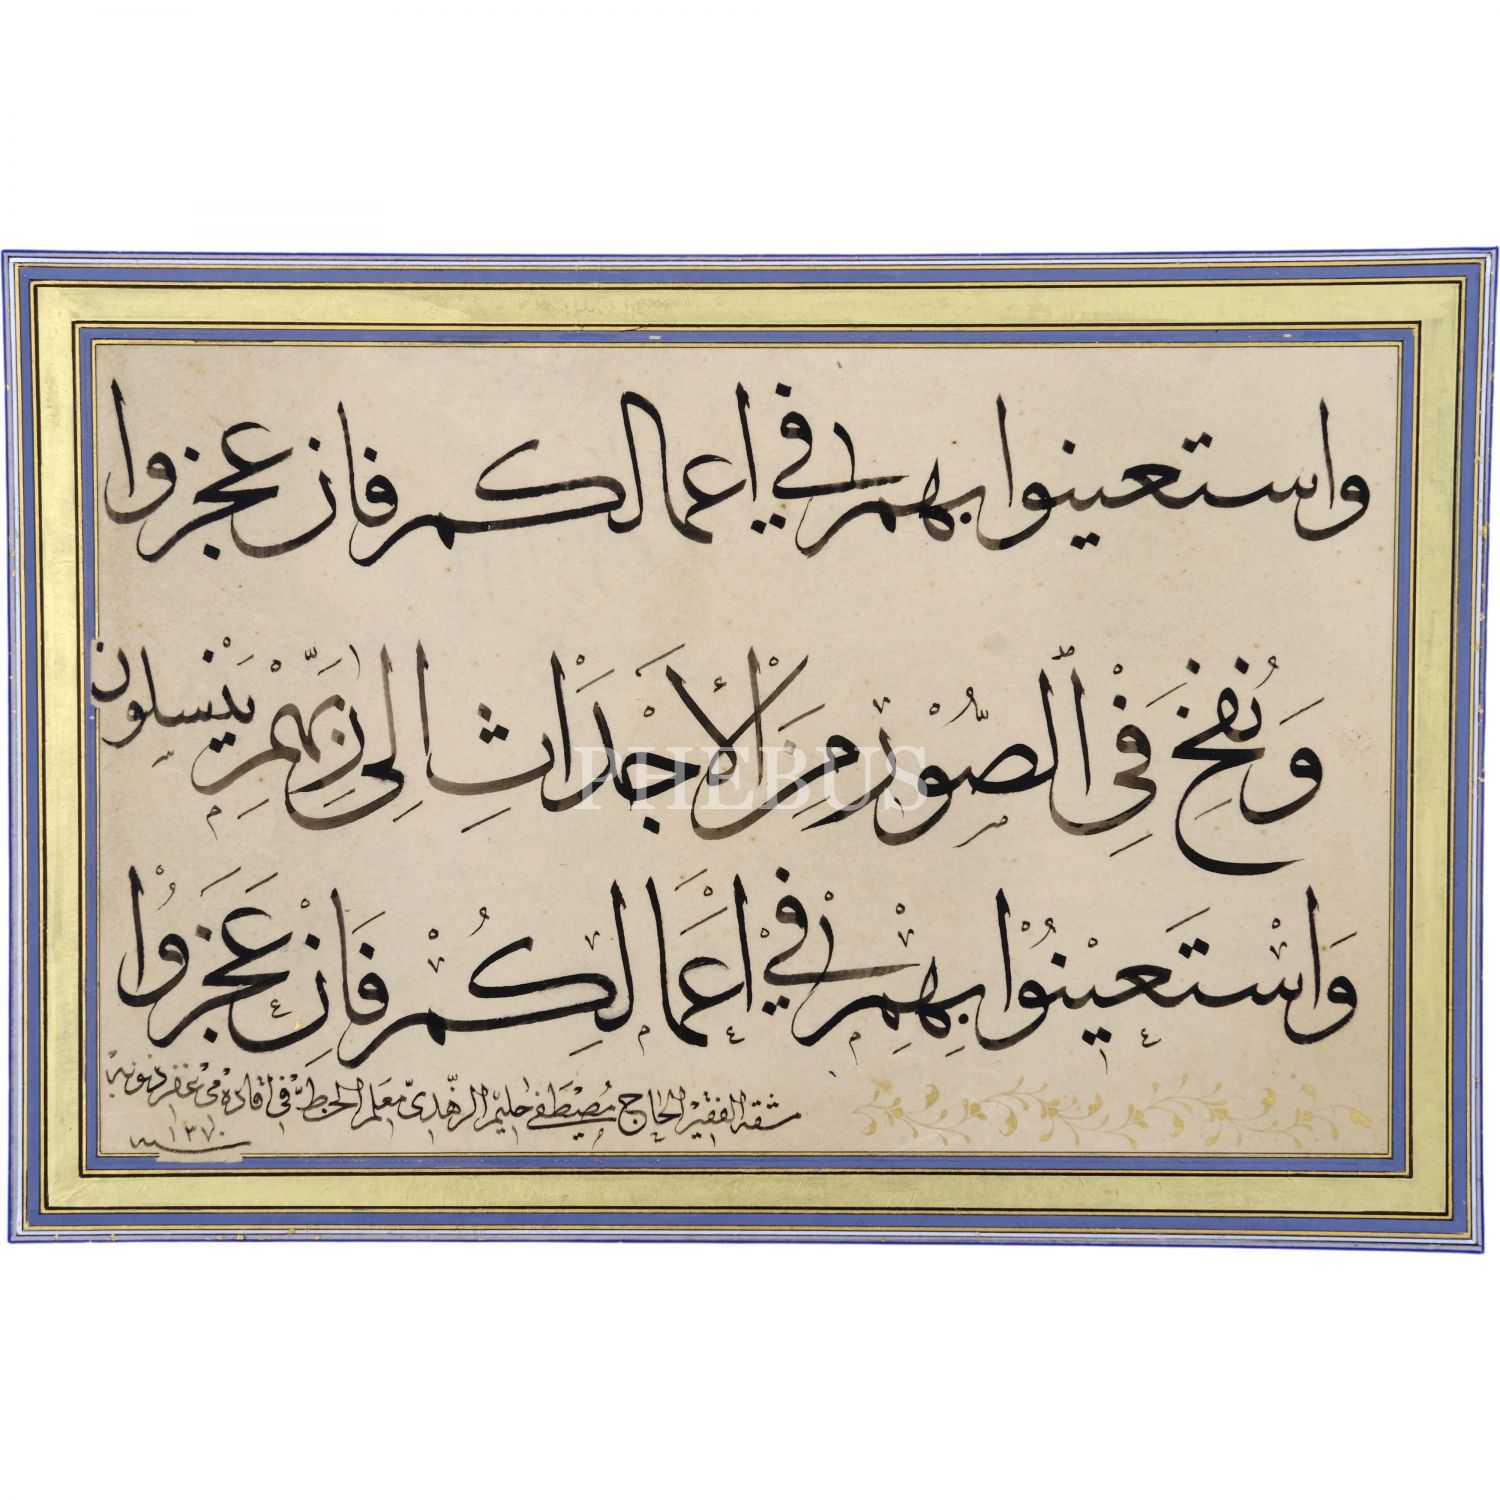 واستعينوا بهم في اعمالكم فان عجزوا
وَنُفِخَ فِي الصُّوْرِ مِنَ الْأَجْدَاثِ اِلٰى رَبِّهِمْ يَنْسِلُون
PHEBUS
وَاسْتَعِيْنُوْا بِهِمْ فِيْ اَعْمَالِكُمْ فَاِنْ عَجَزُوْا
مشقه الفقير الحاج مصطفى حليم الزهدى معلم الخط فى غفر ذنوبه
سنه ١٣٧٠